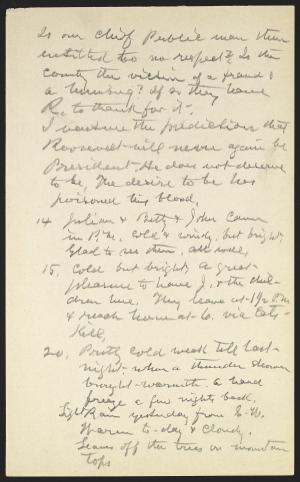 Is our chief Public man then
entitled to no respect? Is the
country the victim of a fraud &
a humbug? If so they have
R. to thank for it.
I venture the prediction that
Roosevelt will never again be
President. He does not deserve
to be. The desire to be has
poisoned his blood.
14 Julian & Betty & John came
in P.M. Cold & windy, but bright.
Glad to see them, all well.
15, Cold but bright, a great
pleasure to have J. & the chil-
dren here. They leave at 1½ P.M.
& reach home at 6. via Cats-
kill,
20, Pretty cold week till last
night - when a thunder shower
brought warmth. a hard
freeze a few nights back.
Light Rain yesterday from S-W.
Warm to-day & cloudy.
Leaves off the trees on mountain
tops